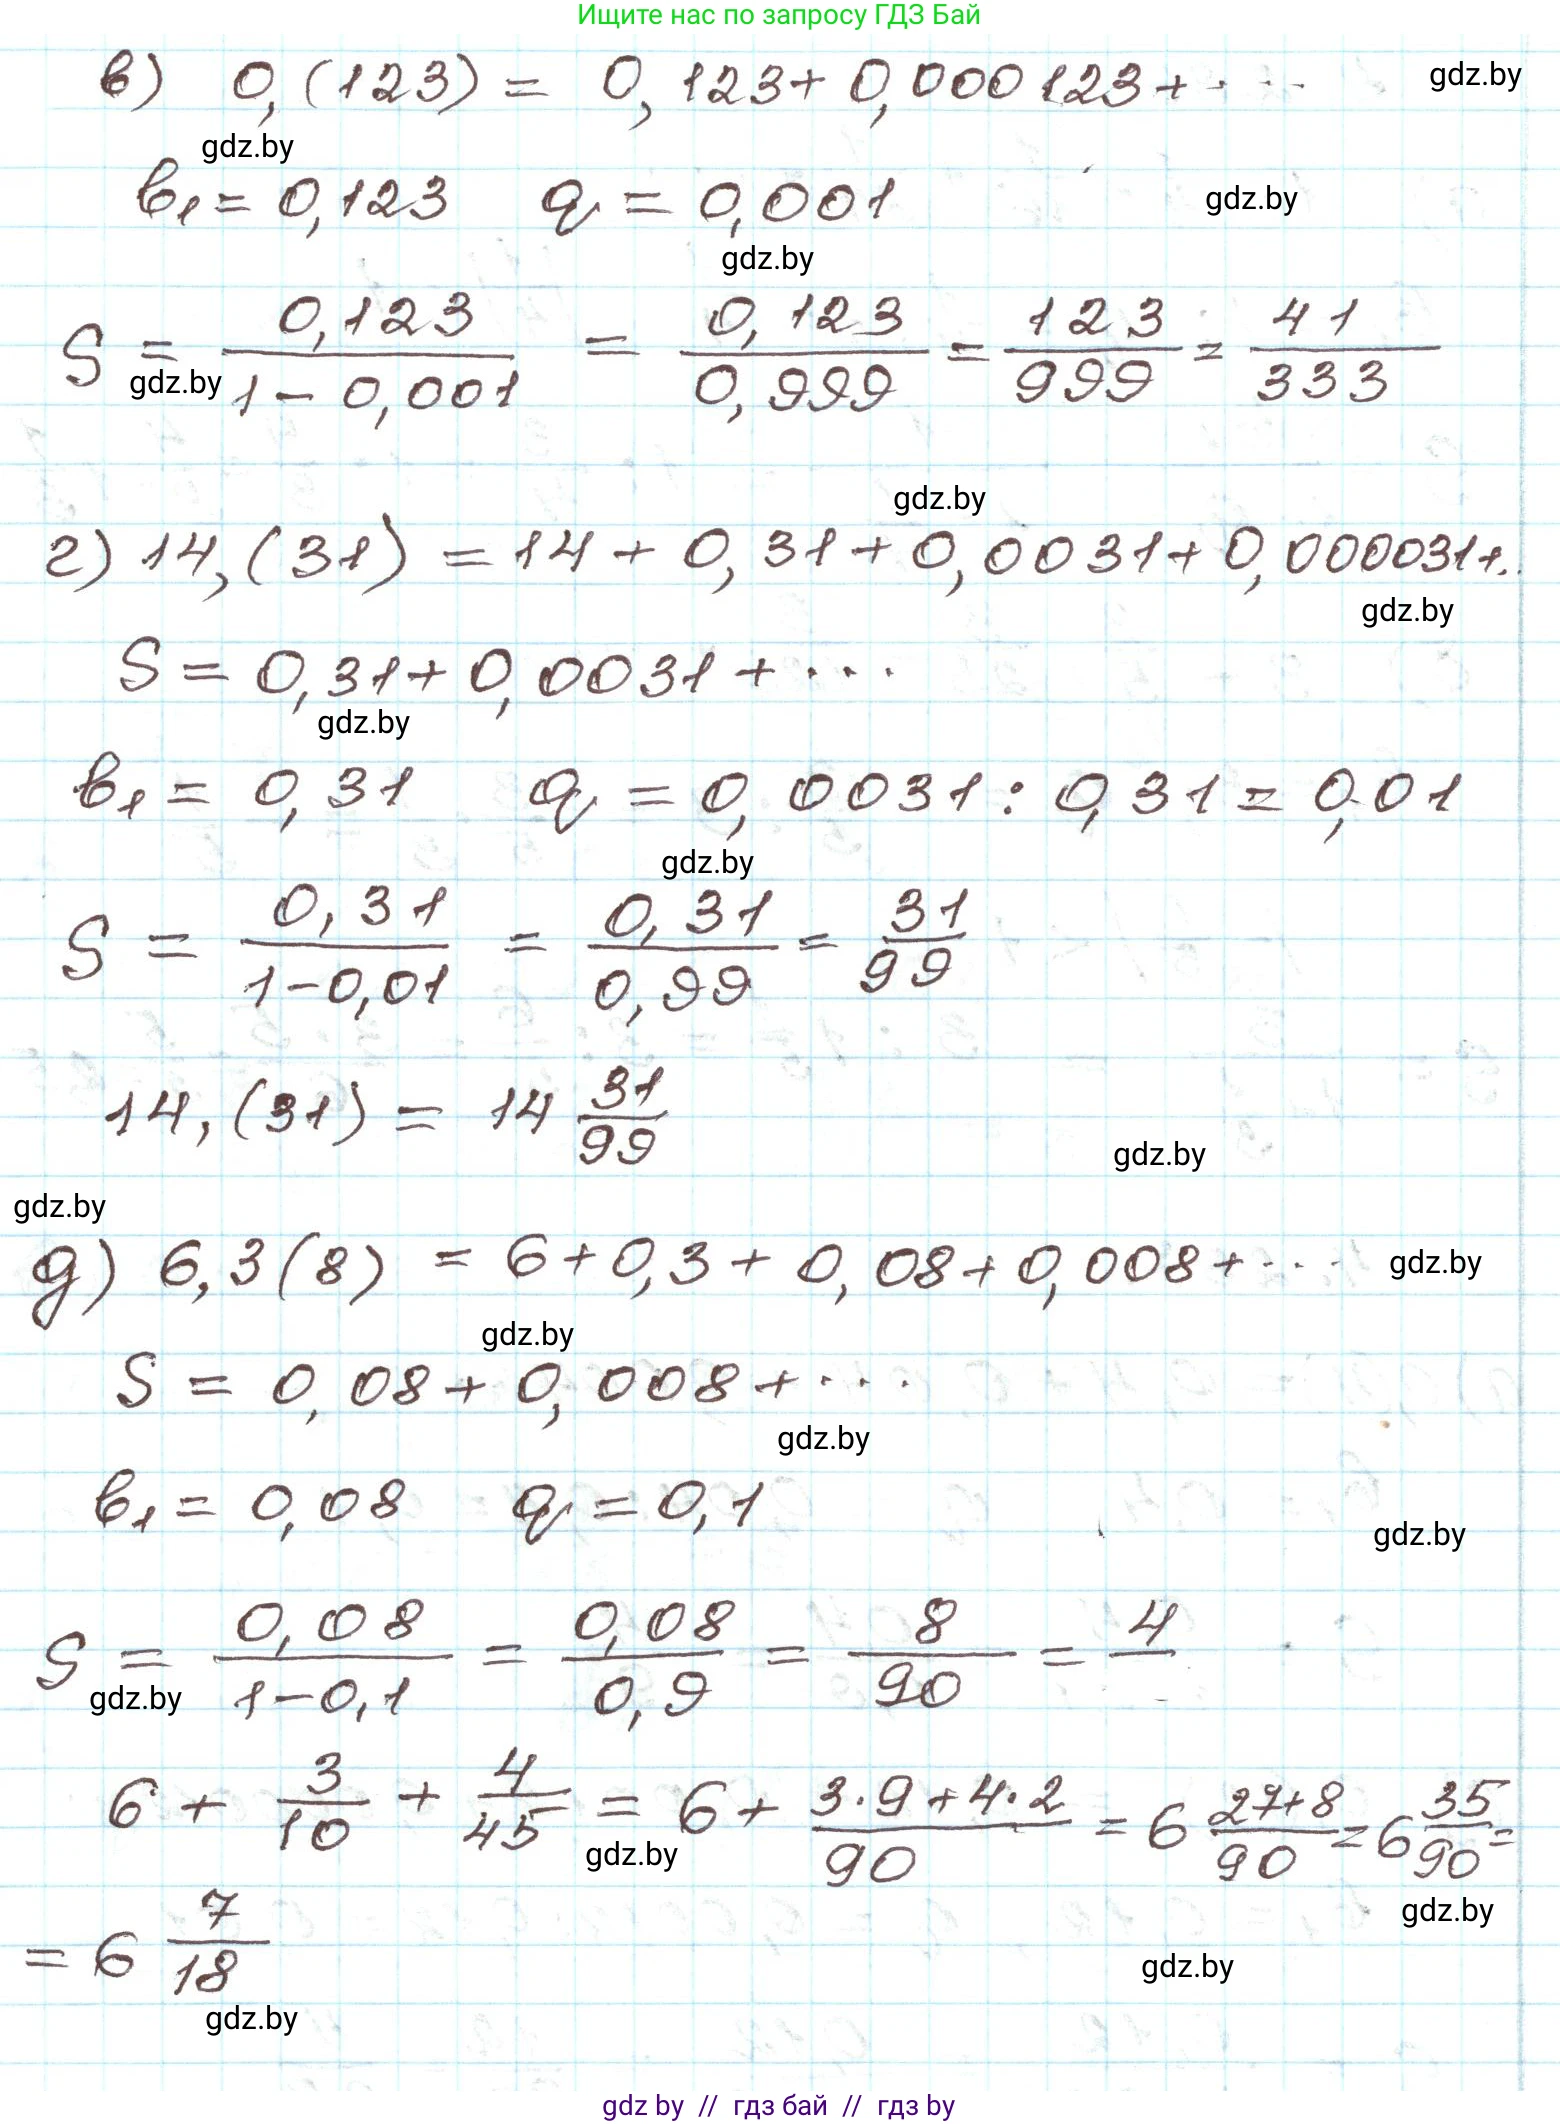 Ищите нас по запросу ГДЗ Бай
в) 0,(123) = 0,123+0,000123+...
gdz.by
gdz.by
b₁=0,123 q=0,001
gdz.by
gdz.by
S = 0,123/(1-0,001) = 0,123/0,999 = 123/999 = 41/333
gdz.by
gdz.by
г) 14,(31) = 14+0,31+0,0031+0,000031+..
gdz.by
S = 0,31+0,0031+...
gdz.by
b₁= 0,31 q=0,0031:0,31=0,01
gdz.by
S = 0,31/(1-0,01) = 0,31/0,99 = 31/99
14,(31) = 14 31/99
gdz.by
gdz.by
д) 6,3(8) = 6+0,3+0,08+0,008+...
gdz.by
gdz.by
S = 0,08+0,008+...
gdz.by
b₁= 0,08 q=0,1
gdz.by
S = 0,08/(1-0,1) = 0,08/0,9 = 8/90 = 4/
gdz.by
6 + 3/10 + 4/45 = 6+ (3·9+4·2)/90 = 6 (27+8)/90 = 6 35/90 =
gdz.by
gdz.by
= 6 7/18
gdz.by
gdz.by
gdz by // гдз бай // гдз by